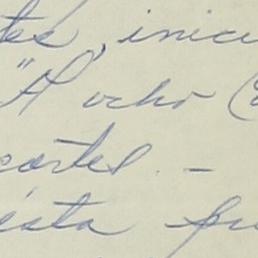 tes, inici
"A ocho C
cartel. -
esta pu